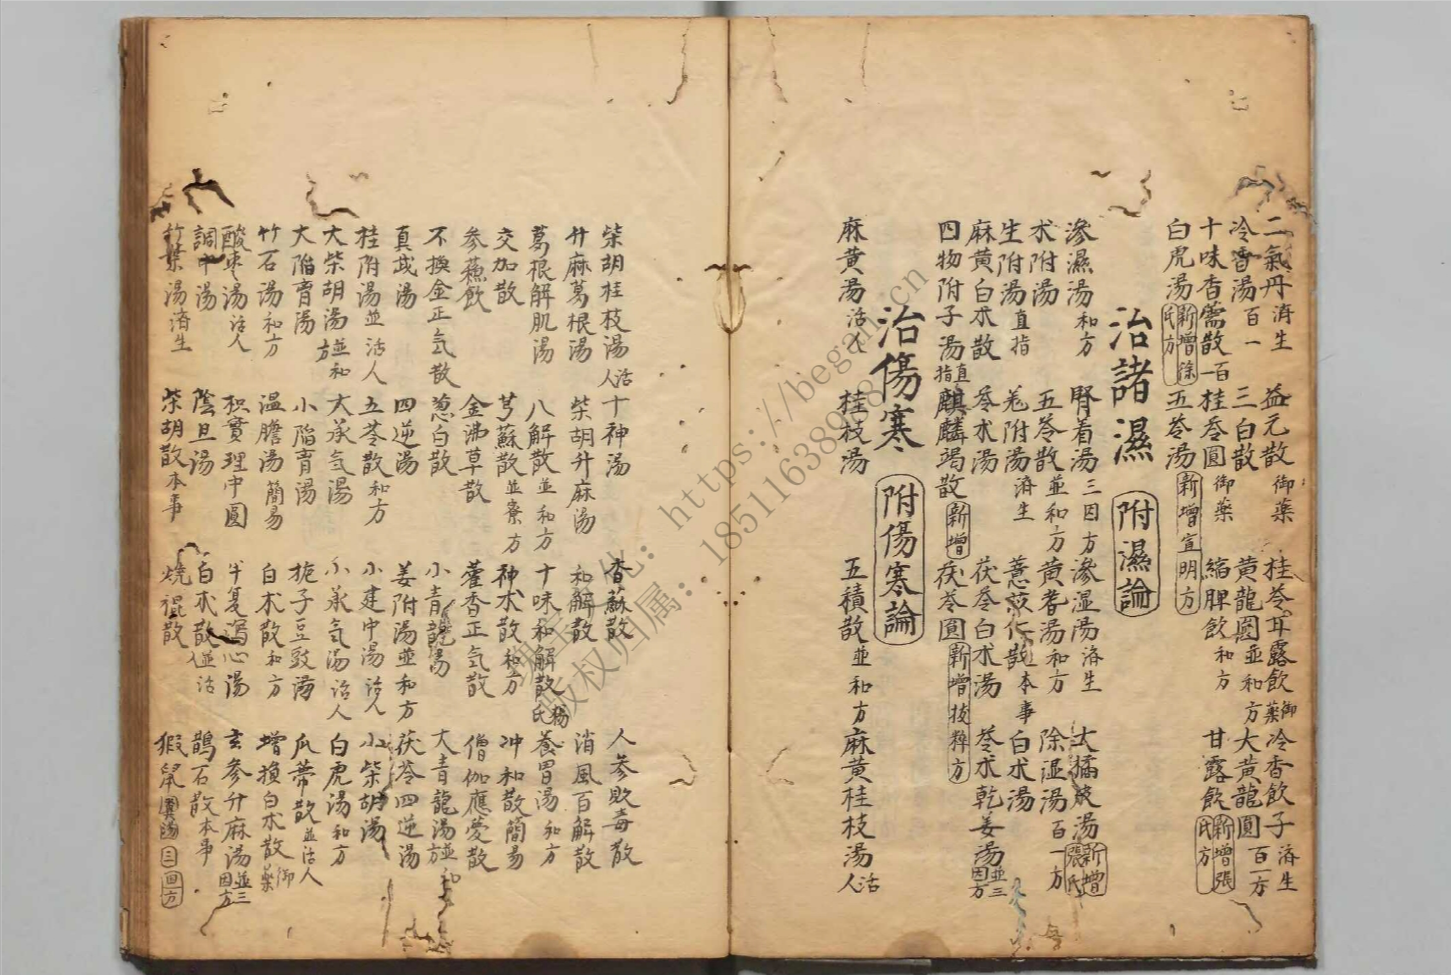 二氣丹濟生 益元散御藥 桂苓甘露飲御藥 冷香飲子濟生
冷香湯百一 三白散 黃龍圓並和方 大黃龍圓百一方
十味香薷散百一 桂苓圓御藥 縮脾飲和方 甘露飲新增張氏方
白虎湯新增徐氏方 五苓湯新增宣明方
治諸濕 附濕論
滲濕湯和方 腎着湯三因方 滲湿湯济生 大橘皮湯新增張氏
朮附湯 五苓散並和方 黃耆湯和方 除湿湯百一方
生附湯直指 羗附湯濟生 薏苡仁散本事 白朮湯
麻黃白朮散 苓朮湯 茯苓白朮湯 苓朮乾姜湯並三因方
四物附子湯直指 麒麟竭散新增 茯苓圓新增拔粹方
治傷寒 附傷寒論
麻黃湯活人 桂枝湯 五積散並和方 麻黃桂枝湯活人
柴胡桂枝湯活人 十神湯 香蘇散 人參敗毒散
升麻葛根湯 柴胡升麻湯 和解散 消風百解散
葛根解肌湯 八解散並和方 十味和解散楊氏 養胃湯和方
交加散 芎蘇散並寮方 神朮散和方 冲和散簡易
參蘓飲 金沸草散 藿香正気散 僧伽應夢散
不換金正気散 葱白散 小青龍湯 大青龍湯並和方
真武湯 四逆湯 姜附湯並和方 茯苓四逆湯
桂附湯並活人 五苓散和方 小建中湯活人 小柴胡湯
大柴胡湯並和方 大承気湯 小承気湯活人 白虎湯和方
大陷胷湯 小陷胷湯 梔子豆豉湯 瓜蒂散並活人
竹石湯和方 温膽湯簡易 白朮散和方 增損白朮散御藥
酸棗湯活人 枳實理中圓 半夏瀉心湯 玄參升麻湯並三因方
調中湯 陰旦湯 白朮散並活 鵲石散本事
竹葉湯濟生 柴胡散本事 燒裩散 猳鼠糞湯三因方
弘毅文化：https://began.cn
版权归属：18511638988